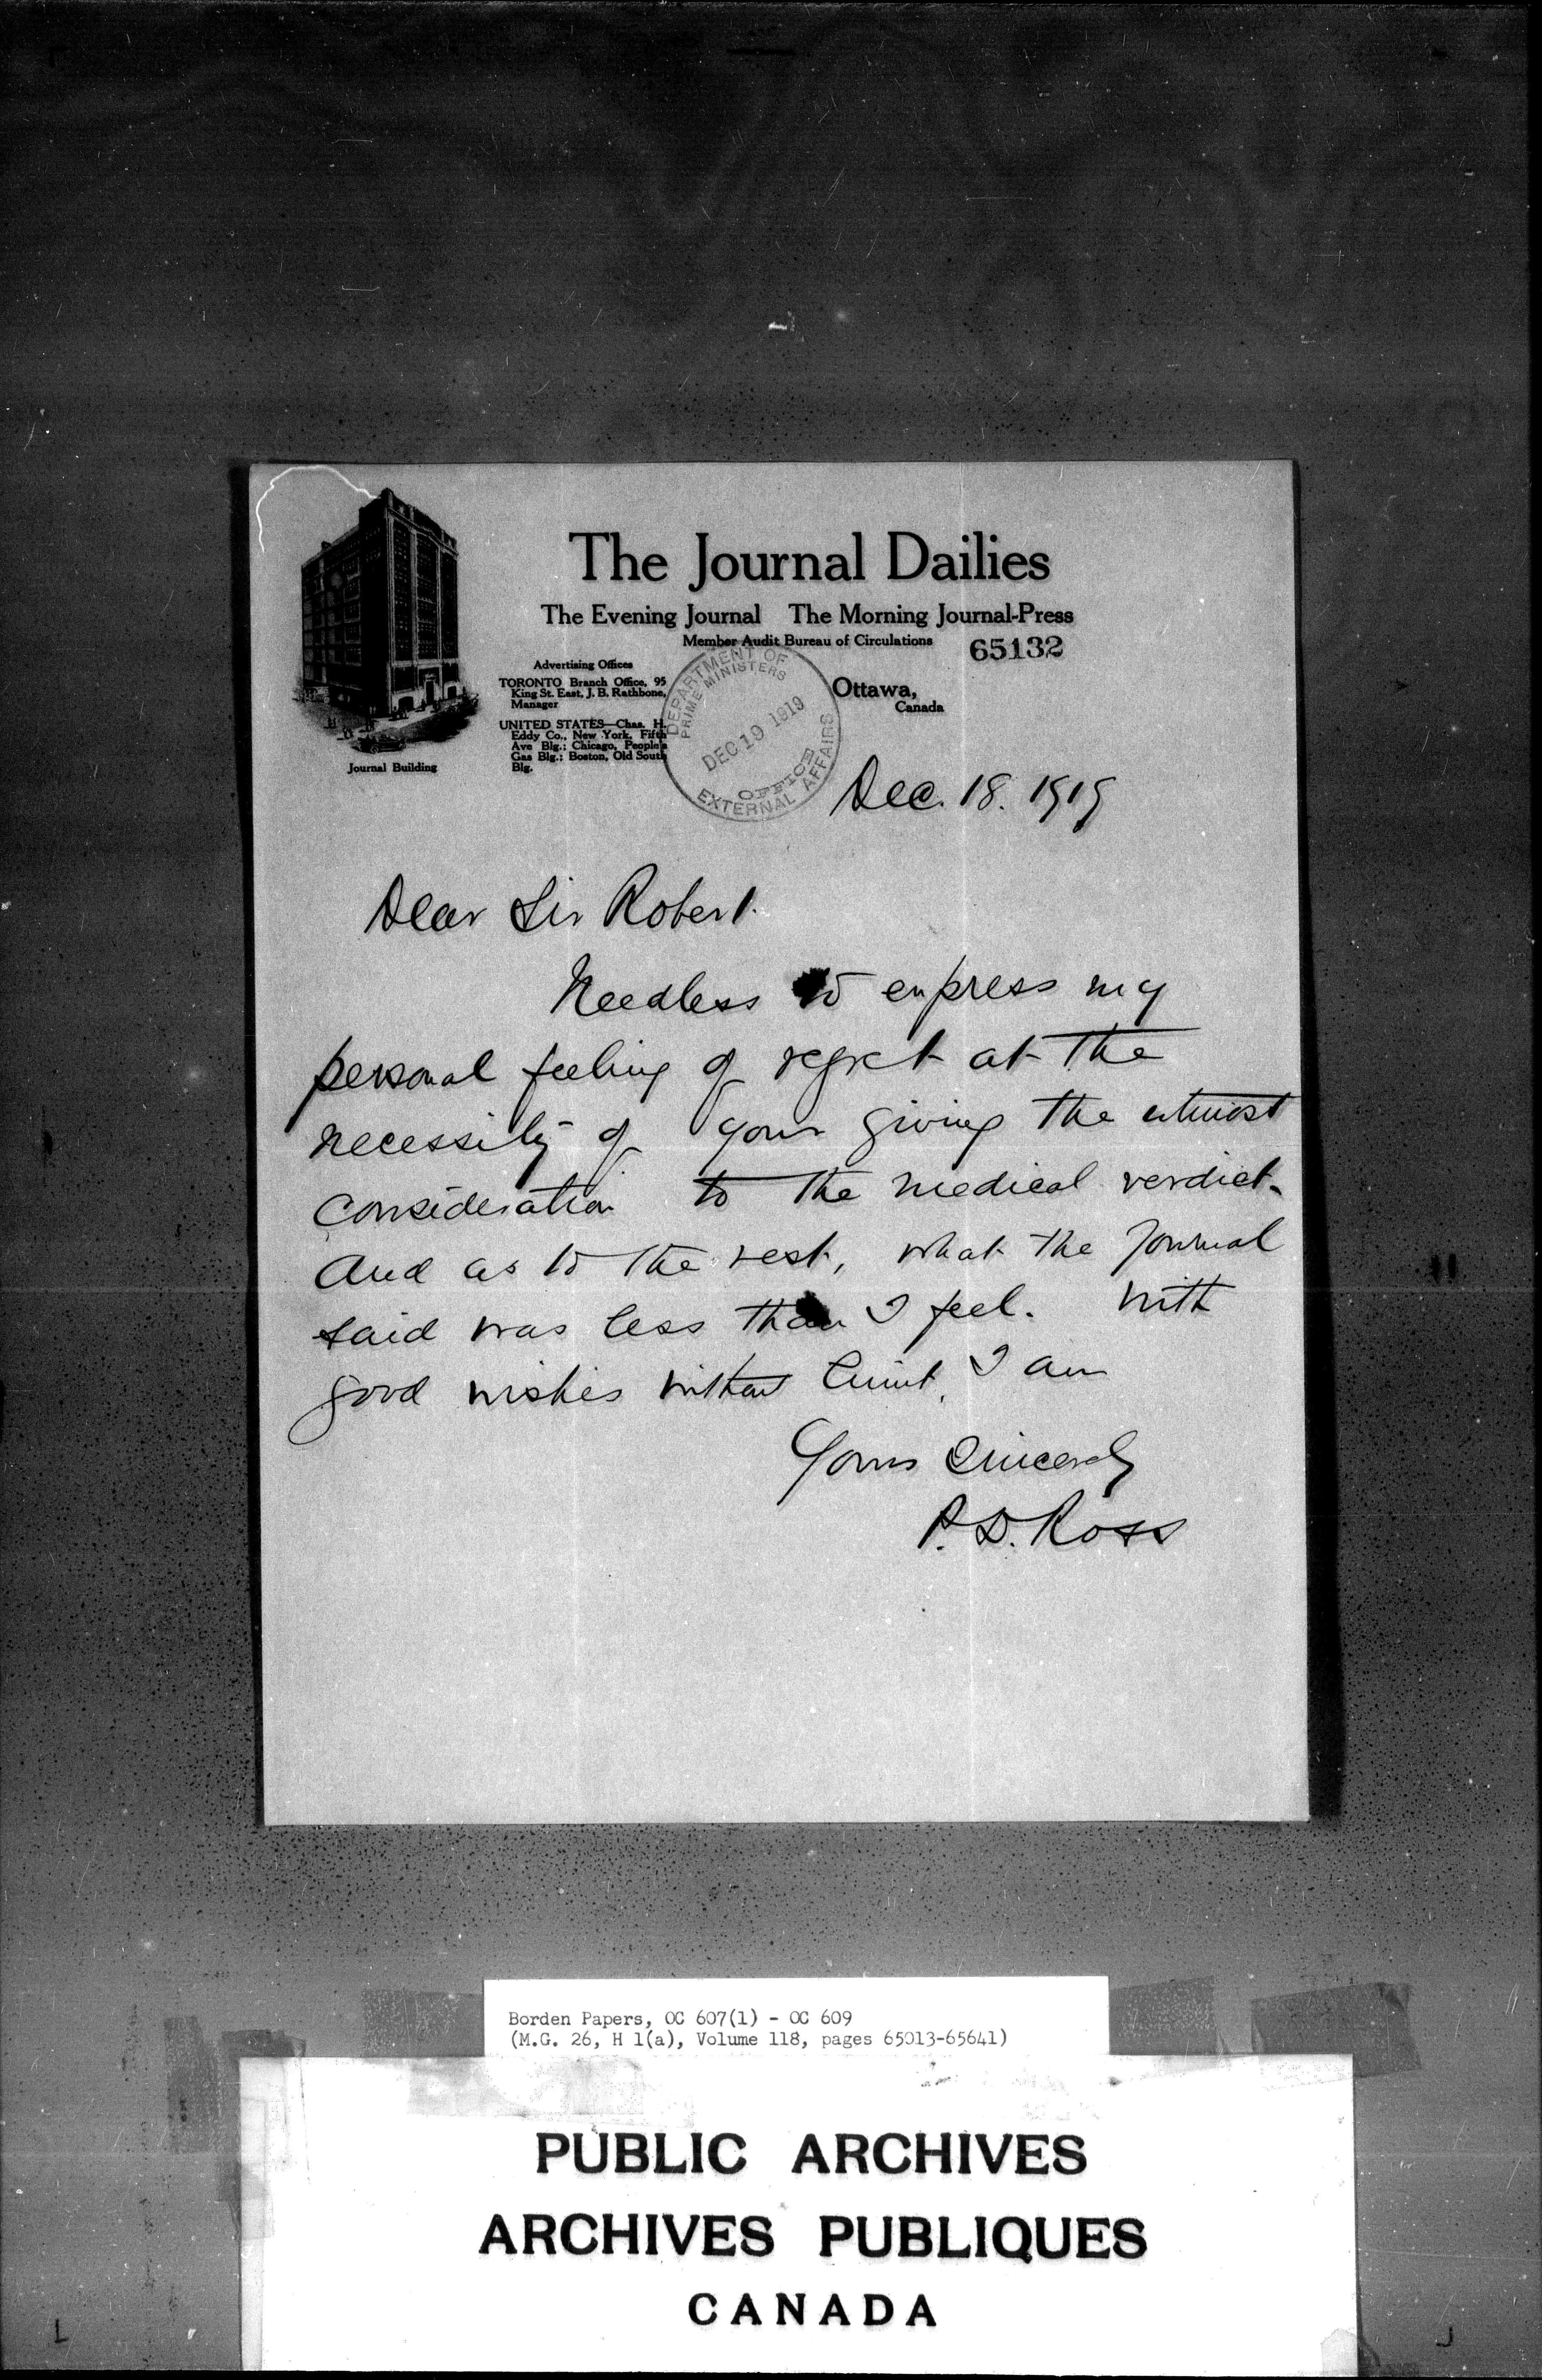 The Journal Dailies
The Evening Journal The Morning Journal-Press
Member Audit Bureau of Circulations
65132
Advertising Offices
TORONTO Branch Office, 95
King St. East, J. B. Rathbone,
Manager
UNITED STATES—Chas. H.
Eddy Co., New York, Fifth
Ave Blg.; Chicago, People's
Gas Blg.; Boston, Old South
Blg.
Journal Building
Ottawa,
Canada
DEPARTMENT OF
PRIME MINISTERS
DEC 19 1919
OFFICE
EXTERNAL AFFAIRS
Dec. 18. 1919
Dear Sir Robert.
Needless to express my
personal feeling of regret at the
necessity of your giving the utmost
consideration to the medical verdict.
And as to the rest, what the Journal
said was less than I feel. With
good wishes without limit, I am
Yours Sincerely
P.D. Ross
Borden Papers, OC 607(1) - OC 609
(M.G. 26, H 1(a), Volume 118, pages 65013-65641)
PUBLIC ARCHIVES
ARCHIVES PUBLIQUES
CANADA